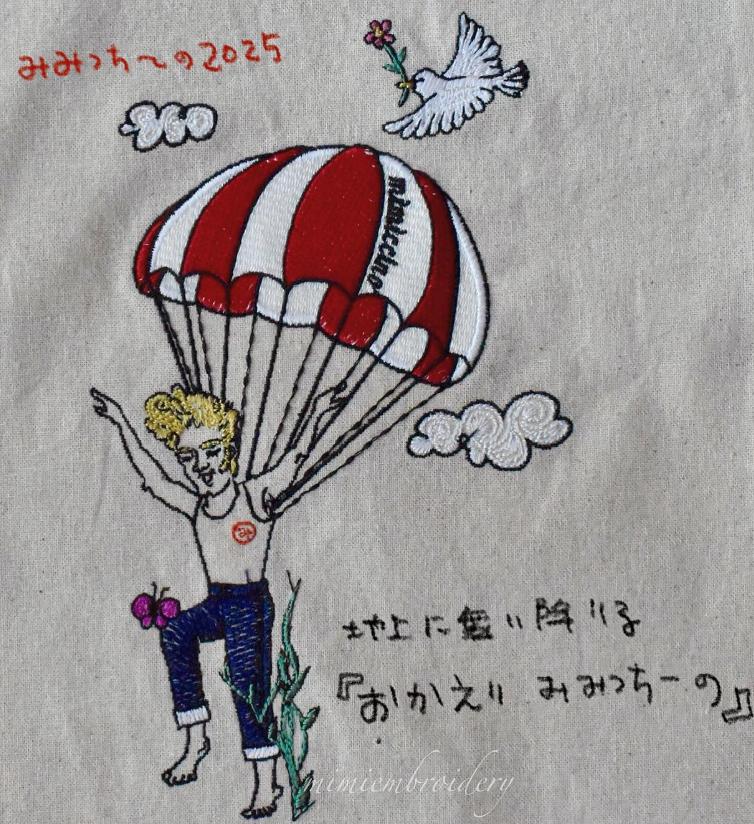 みみっち〜の2025
mimiccino
み
地上に舞い降りる
『おかえり みみっちーの』
mimiembroidery